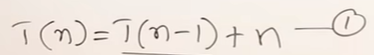 T(n) = T(n-1) + n —①